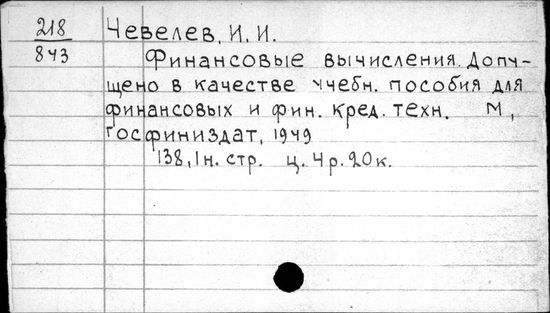 218 Чевелев, И. И.
843 Финансовые вычисления. Допу-
щено в качестве учебн. пособия для
финансовых и фин. кред. техн. М,
Госфиниздат, 1949
138, 1н. стр. ц. 4р. 20к.